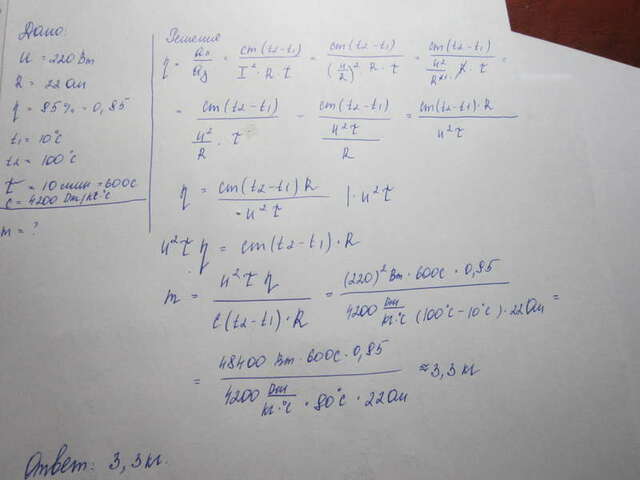 Дано:
U = 220 Вт
R = 22 Ом
η = 85% = 0,85
t₁ = 10°C
t₂ = 100°C
τ = 10 мин = 600с
c = 4200 Дж/кг·°C
m = ?
Решение
η = Aп/Aз = cm(t₂-t₁)/(I²·R·τ) = cm(t₂-t₁)/((U/R)²·R·τ) = cm(t₂-t₁)/(U²/R²·R·τ) =
= cm(t₂-t₁)/(U²/R·τ) = cm(t₂-t₁)/(U²τ/R) = cm(t₂-t₁)·R/U²τ
η = cm(t₂-t₁)R/U²τ |·U²τ
U²τη = cm(t₂-t₁)·R
m = U²τη/(c(t₂-t₁)·R) = (220)²Вт·600с·0,85/(4200 Дж/кг·°C (100°C-10°C)·22Ом) =
= 48400 Вт·600с·0,85/(4200 Дж/кг·°C·90°C·22Ом) ≈ 3,3 кг
Ответ: 3,3кг.